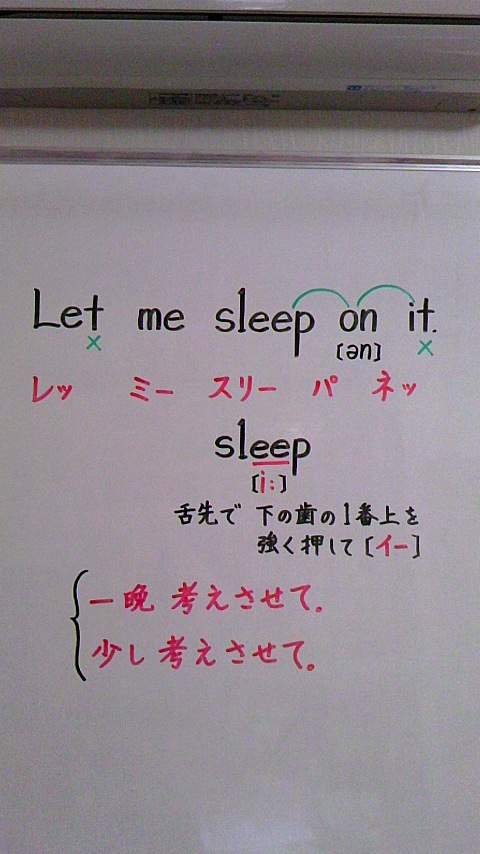 Let me sleep on it.
× [ən] ×
レッ ミー スリー パ ネッ
sleep
[i:]
舌先で 下の歯の1番上を
強く押して [イー]
一晩 考えさせて。
少し 考えさせて。